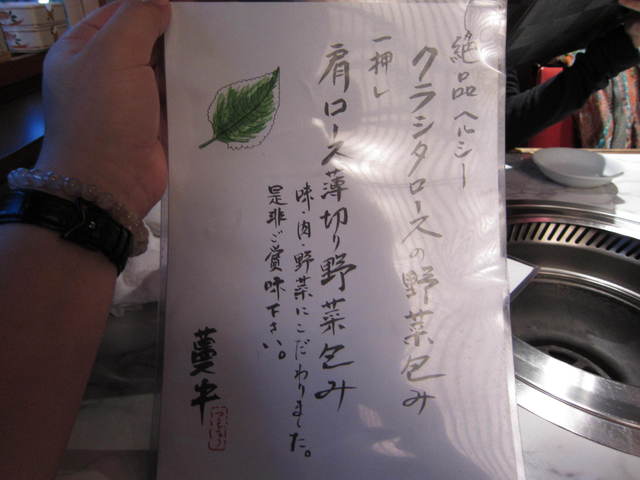 絶品ヘルシー
クラシタロースの野菜包み
一押し
肩ロース薄切り野菜包み
味・肉・野菜にこだわりました。
是非ご賞味下さい。
蔓牛